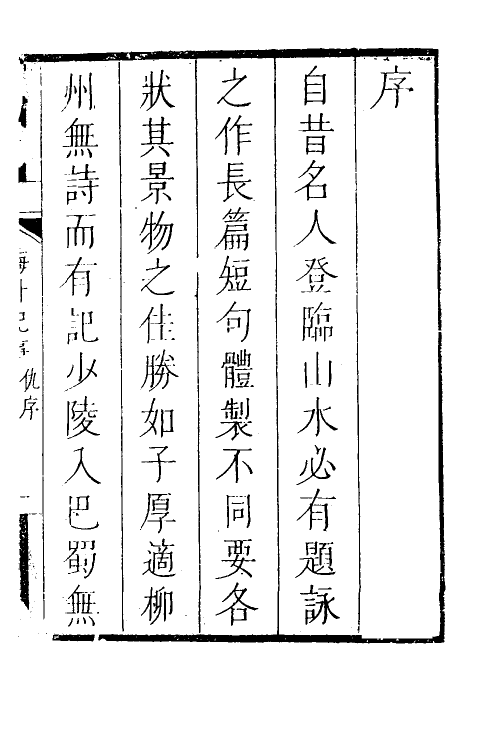 序
自昔名人登臨山水必有題詠
之作長篇短句體製不同要各
狀其景物之佳勝如子厚適柳
州無詩而有記少陵入巴蜀無
仇序